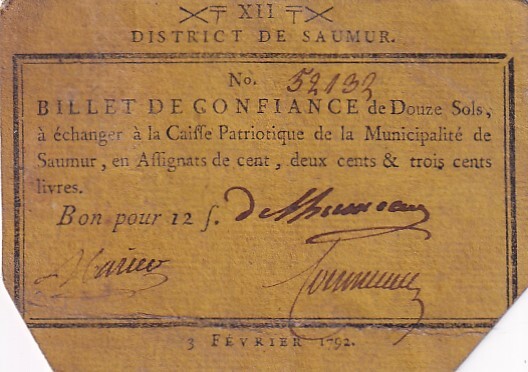 XII
DISTRICT DE SAUMUR.
No. 52132
BILLET DE CONFIANCE de Douze Sols,
à échanger à la Caisse Patriotique de la Municipalité de
Saumur, en Assignats de cent, deux cents & trois cents
livres.
Bon pour 12 s.
3 FÉVRIER 1792.